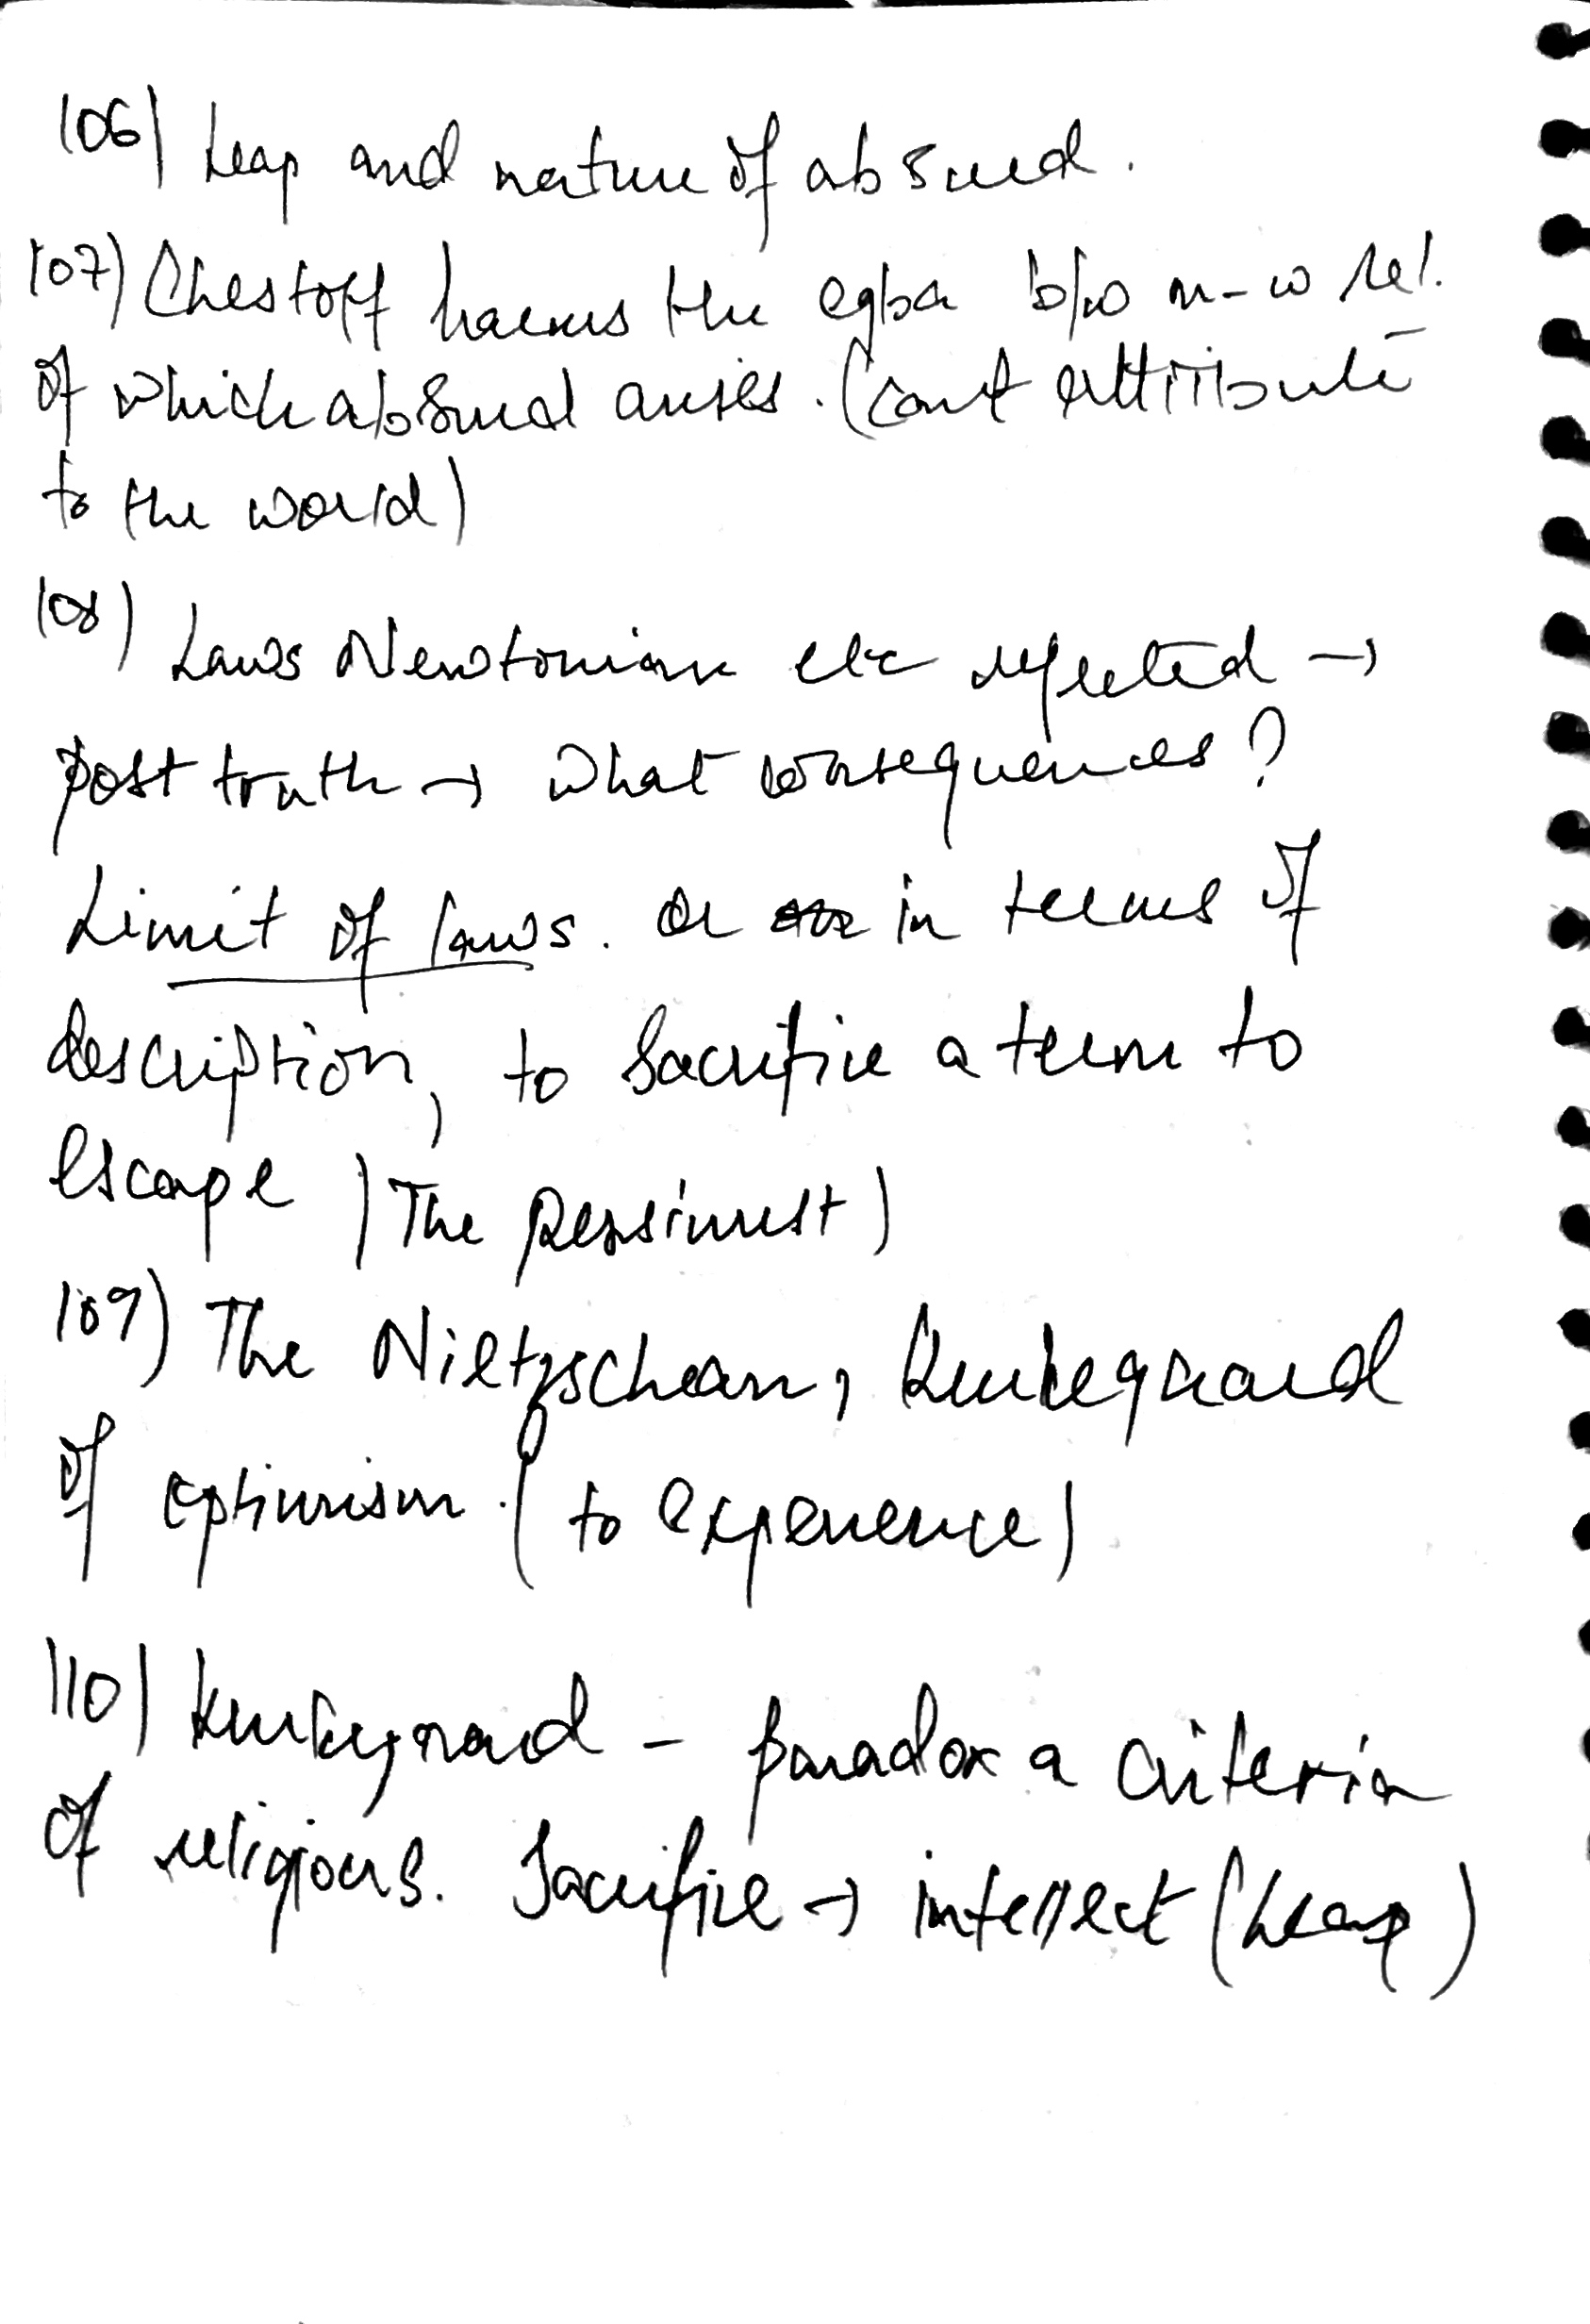 106) Leap and nature of absurd.
107) Chestoff harms the eqba b/w m-w rel.
of which absurd arises. (can't attribute
to the world)
108) Laws Newtonian etc rejected →
post truth → what consequences?
Limit of laws. or in terms of
description, to sacrifice a term to
escape (The pessimist)
109) The Nietzschean, Kierkegaard
of optimism. (to experience)
110) Kierkegaard - paradox a criteria
of religious. Sacrifice → intellect (Leap)